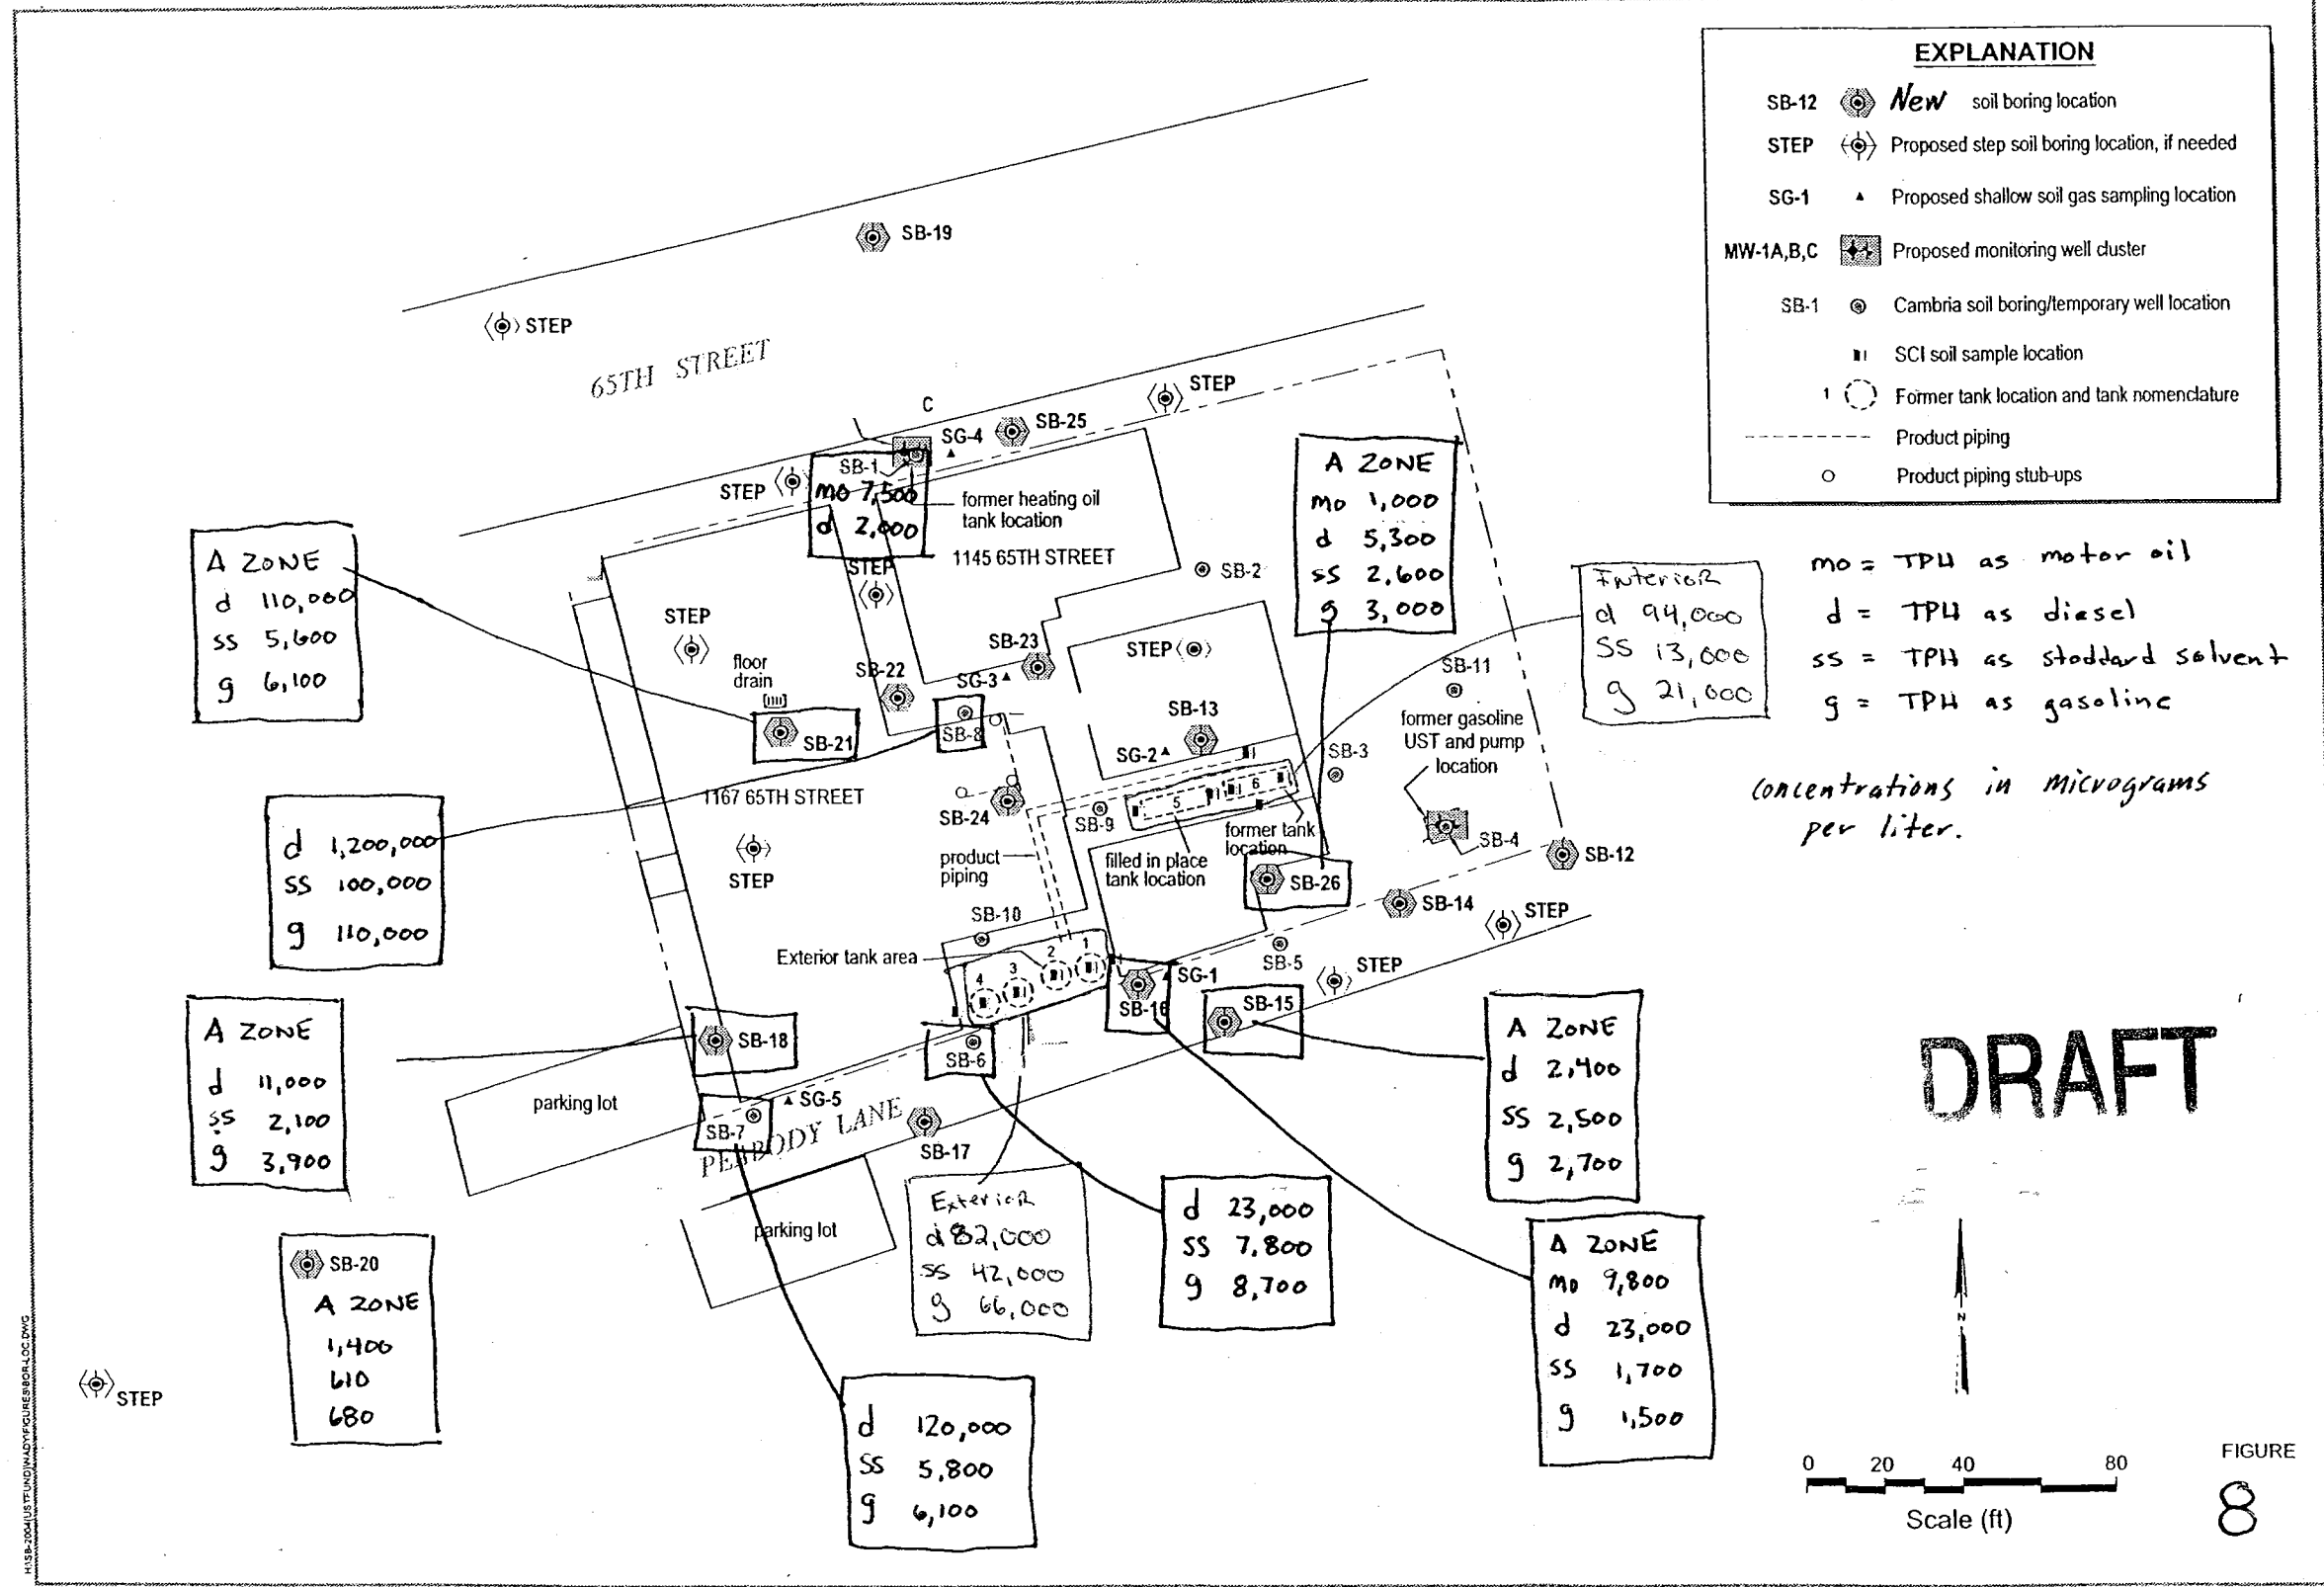 EXPLANATION
SB-12 New soil boring location
STEP Proposed step soil boring location, if needed
SG-1 Proposed shallow soil gas sampling location
MW-1A,B,C Proposed monitoring well cluster
SB-1 Cambria soil boring/temporary well location
SCI soil sample location
1 Former tank location and tank nomenclature
Product piping
Product piping stub-ups
mo = TPH as motor oil
d = TPH as diesel
ss = TPH as stoddard solvent
g = TPH as gasoline
concentrations in micrograms
per liter.
SB-19
STEP
65TH STREET
STEP
C
SG-4
SB-25
STEP
SB-1
mo 7,500
d 2,000
former heating oil
tank location
1145 65TH STREET
STEP
SB-2
A ZONE
mo 1,000
d 5,300
ss 2,600
g 3,000
Interior
d 94,000
ss 13,000
g 21,000
A ZONE
d 110,000
ss 5,600
g 6,100
STEP
floor
drain
SB-22
SB-23
SG-3
STEP
SB-11
SB-21
SB-8
SB-13
SG-2
SB-3
former gasoline
UST and pump
location
1167 65TH STREET
SB-24
SB-9
5
6
former tank
location
filled in place
tank location
product
piping
SB-4
SB-12
STEP
SB-26
SB-14
STEP
d 1,200,000
ss 100,000
g 110,000
SB-10
Exterior tank area
4
3
2
1
SG-1
SB-5
STEP
SB-16
SB-15
A ZONE
d 11,000
ss 2,100
g 3,900
SB-18
SB-6
parking lot
SG-5
SB-7
PEABODY LANE
SB-17
parking lot
A ZONE
d 2,400
ss 2,500
g 2,700
DRAFT
Exterior
d 82,000
ss 42,000
g 66,000
d 23,000
ss 7,800
g 8,700
A ZONE
mo 9,800
d 23,000
ss 1,700
g 1,500
SB-20
A ZONE
1,400
610
680
STEP
d 120,000
ss 5,800
g 6,100
N
0 20 40 80
Scale (ft)
FIGURE
8